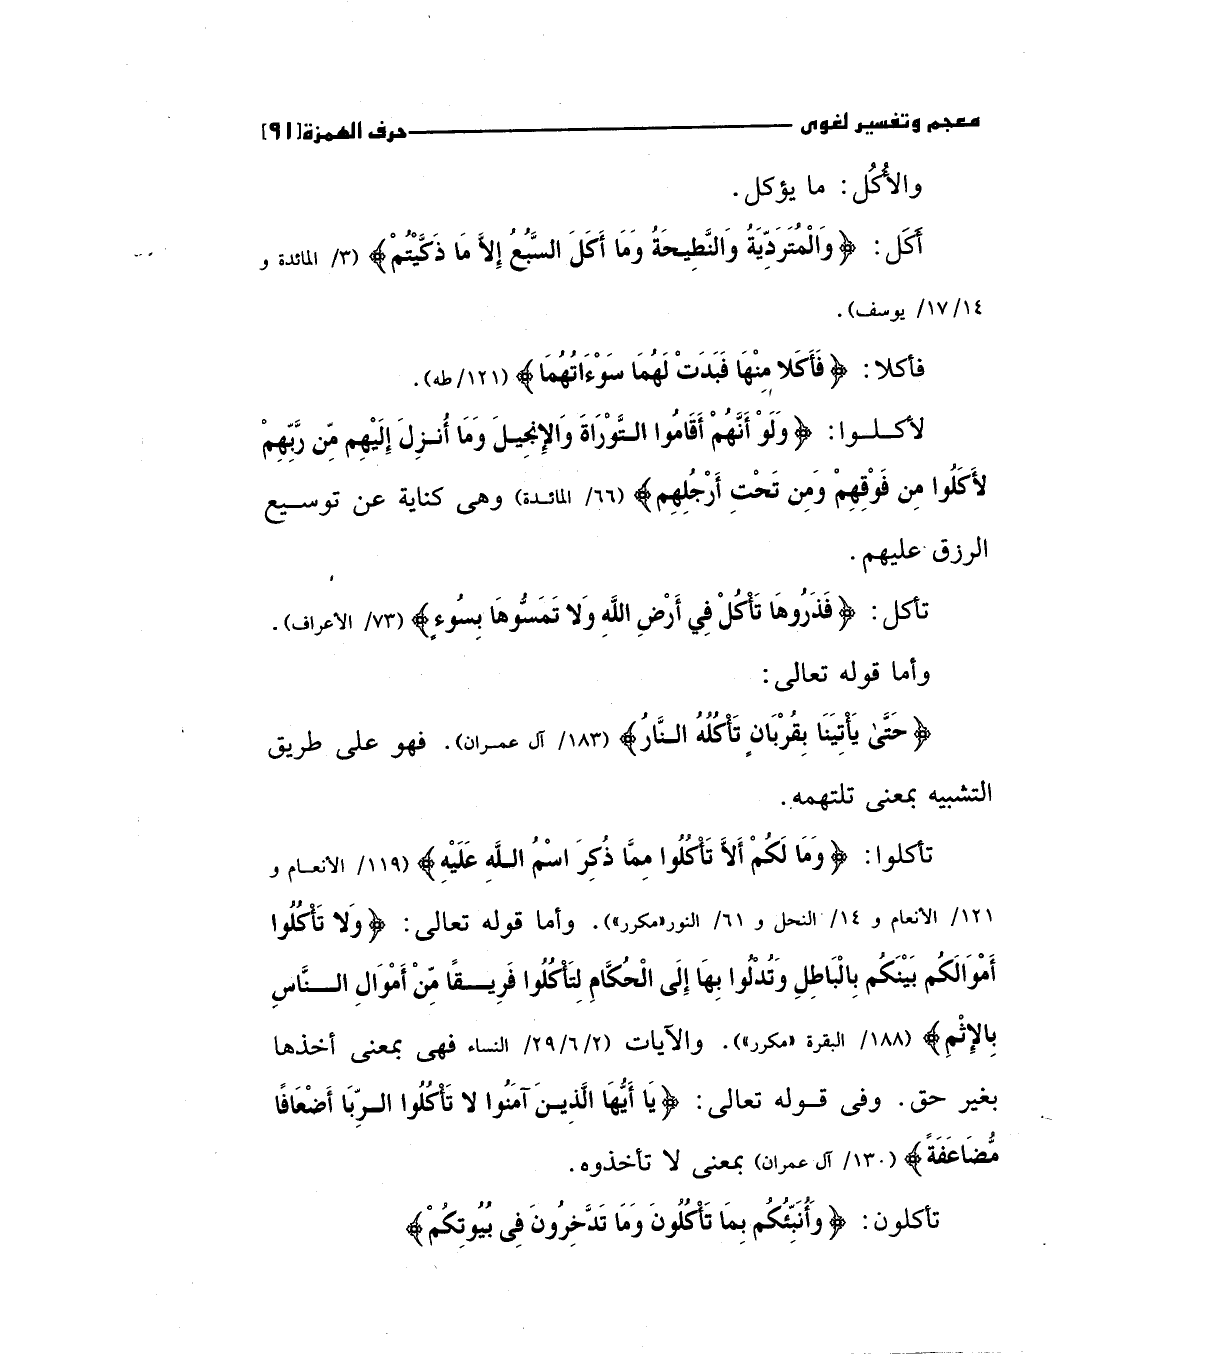 معجم وتفسير لغوى — حرف الهمزة [٩١]
والأُكُل : ما يؤكل .
أَكَل : ﴿ وَالْمُتَرَدِّيَةُ وَالنَّطِيحَةُ وَمَا أَكَلَ السَّبُعُ إِلاَّ مَا ذَكَّيْتُمْ ﴾ (٣/ المائدة و
١٧/١٤/ يوسف) .
فأكلا : ﴿ فَأَكَلا مِنْهَا فَبَدَتْ لَهُمَا سَوْءَاتُهُمَا ﴾ (١٢١/ طه) .
لأكـلـوا : ﴿ وَلَوْ أَنَّهُمْ أَقَامُوا الـتَّوْرَاةَ وَالإِنجِيـلَ وَمَا أُنـزِلَ إِلَيْهِم مِّن رَّبِّهِمْ
لأَكَلُوا مِن فَوْقِهِمْ وَمِن تَحْتِ أَرْجُلِهِم ﴾ (٦٦/ المائـدة) وهى كناية عن توسـيع
الرزق عليهم .
تأكل : ﴿ فَذَرُوهَا تَأْكُلْ فِي أَرْضِ اللَّهِ وَلا تَمَسُّوهَا بِسُوءٍ ﴾ (٧٣/ الأعراف) .
وأما قوله تعالى :
﴿ حَتَّىٰ يَأْتِيَنَا بِقُرْبَانٍ تَأْكُلُهُ الـنَّارُ ﴾ (١٨٣/ آل عمـران) . فهو على طريق
التشبيه بمعنى تلتهمه .
تأكلوا : ﴿ وَمَا لَكُمْ أَلاَّ تَأْكُلُوا مِمَّا ذُكِرَ اسْمُ الـلَّهِ عَلَيْهِ ﴾ (١١٩/ الأنعـام و
١٢١/ الأنعام و ١٤/ النحل و ٦١/ النور«مكرر») . وأما قوله تعالى : ﴿ وَلا تَأْكُلُوا
أَمْوَالَكُم بَيْنَكُم بِالْبَاطِلِ وَتُدْلُوا بِهَا إِلَى الْحُكَّامِ لِتَأْكُلُوا فَرِيـقًا مِّنْ أَمْوَالِ الـنَّاسِ
بِالإِثْمِ ﴾ (١٨٨/ البقرة «مكرر») . والآيات (٢٩/٦/٢/ النساء فهى بمعنى أخذها
بغير حق . وفى قـوله تعالى : ﴿ يَا أَيُّهَا الَّذِيـنَ آمَنُوا لا تَأْكُلُوا الـرِّبَا أَضْعَافًا
مُّضَاعَفَةً ﴾ (١٣٠/ آل عمران) بمعنى لا تأخذوه .
تأكلون : ﴿ وَأُنَبِّئُكُم بِمَا تَأْكُلُونَ وَمَا تَدَّخِرُونَ فِى بُيُوتِكُمْ ﴾